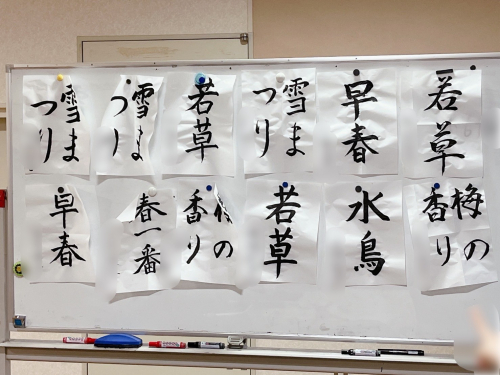 若草
早春
雪ま
つり
若草
雪ま
つり
雪ま
つり
梅の
香り
水鳥
若草
梅の
香り
春一番
早春